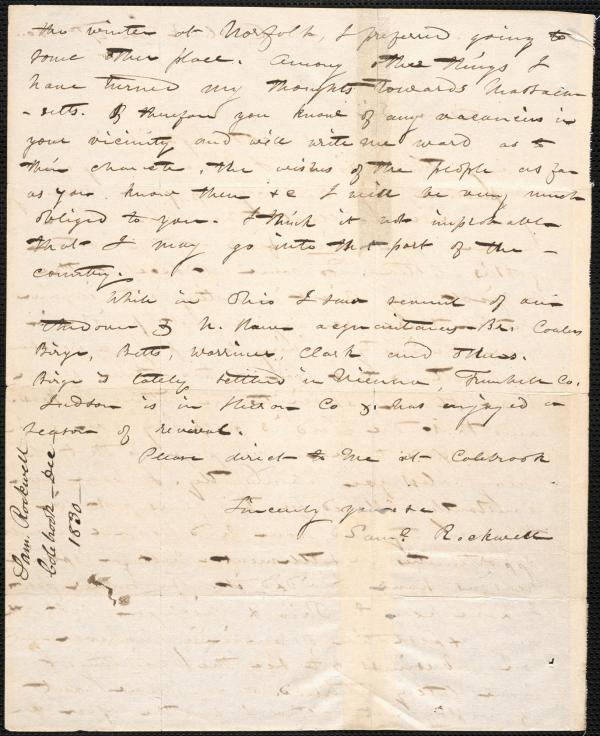 the winter at Norfolk, I preferred going to
some other place. Among other things I
have turned my thoughts towards Massachu
-setts. If therefore you know of any vacancies in
your vicinity and will write me word as to
their character, the wishes of the people as far
as you know them &c I will be very much
obliged to you. I think it not improbable
that I may go into that part of the
country.
While in Ohio I saw several of our
Andover & N. Haven acquaintances Br.
Birge, Betts, Warriner, Clark and others.
Birge is lately settled in Vienna, Trumbull Co.
Judson is in Co & has enjoyed a
season of revival.
Please direct to me at Colebrook
Sincerely yours &c
Saml. Rockwell
Sam. Rockwell
Colebrook - Dec
1830